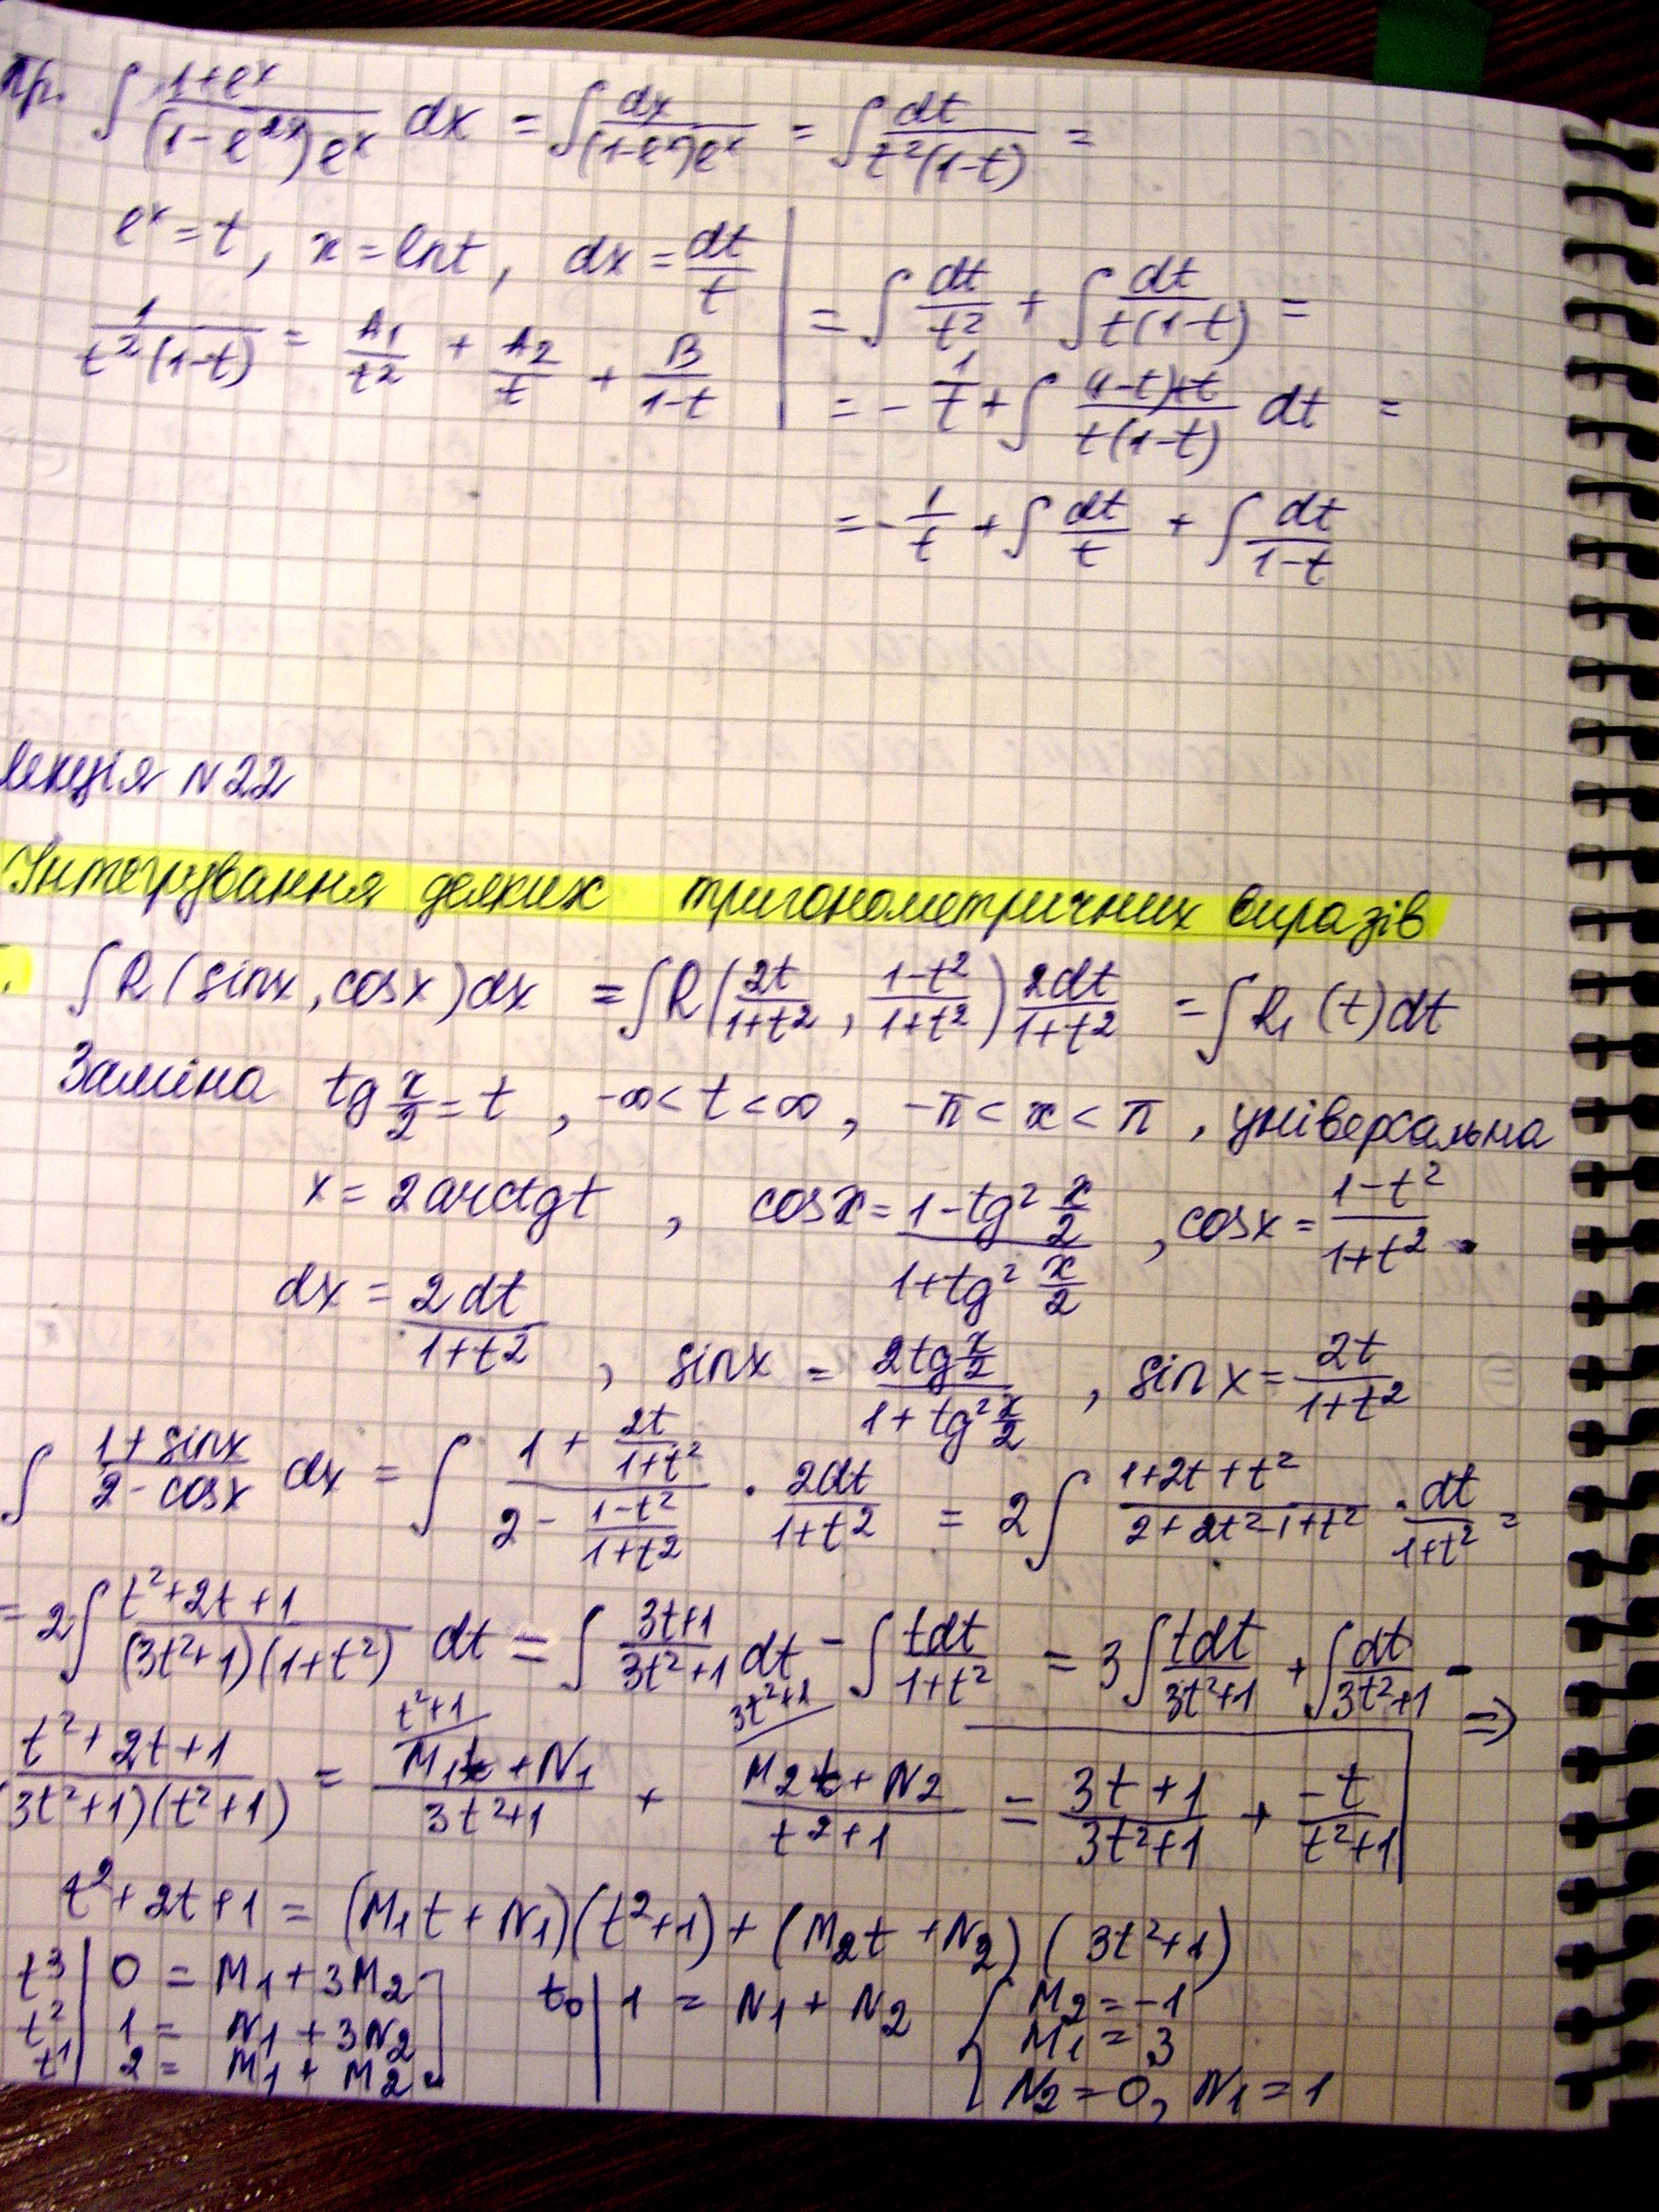 Пр. ∫ (1+e^x)/((1-e^{2x})e^x) dx = ∫ dx/((1-e^x)e^x) = ∫ dt/(t²(1-t)) =
e^x = t, x = lnt, dx = dt/t
= ∫ dt/t² + ∫ dt/(t(1-t)) =
1/(t²(1-t)) = A₁/t² + A₂/t + B/(1-t)
= - 1/t + ∫ ((1-t)+t)/(t(1-t)) dt =
= - 1/t + ∫ dt/t + ∫ dt/(1-t)
Лекція N22
Інтегрування деяких тригонометричних виразів
∫ R(sinx, cosx)dx = ∫ R(2t/(1+t²), (1-t²)/(1+t²)) 2dt/(1+t²) = ∫ R₁(t)dt
Заміна tg x/2 = t, -∞ < t < ∞, -π < x < π, універсальна
x = 2arctgt, cosx = (1-tg² x/2)/(1+tg² x/2), cosx = (1-t²)/(1+t²).
dx = 2dt/(1+t²), sinx = (2tg x/2)/(1+tg² x/2), sinx = 2t/(1+t²)
∫ (1+sinx)/(2-cosx) dx = ∫ (1+ 2t/(1+t²))/(2- (1-t²)/(1+t²)) · 2dt/(1+t²) = 2∫ (1+2t+t²)/(2+2t²-1+t²) · dt/(1+t²) =
= 2∫ (t²+2t+1)/((3t²+1)(1+t²)) dt = ∫ (3t+1)/(3t²+1) dt - ∫ tdt/(1+t²) = 3∫ tdt/(3t²+1) + ∫ dt/(3t²+1) - ⇒
t²+1 3t²+1
(t²+2t+1)/((3t²+1)(t²+1)) = (M₁t+N₁)/(3t²+1) + (M₂t+N₂)/(t²+1) = (3t+1)/(3t²+1) + (-t)/(t²+1)
t²+2t+1 = (M₁t+N₁)(t²+1) + (M₂t+N₂)(3t²+1)
t³| 0 = M₁+3M₂
t²| 1 = N₁+3N₂
t¹| 2 = M₁+M₂
t₀| 1 = N₁+N₂
{ M₂ = -1
M₁ = 3
N₂ = 0, N₁ = 1